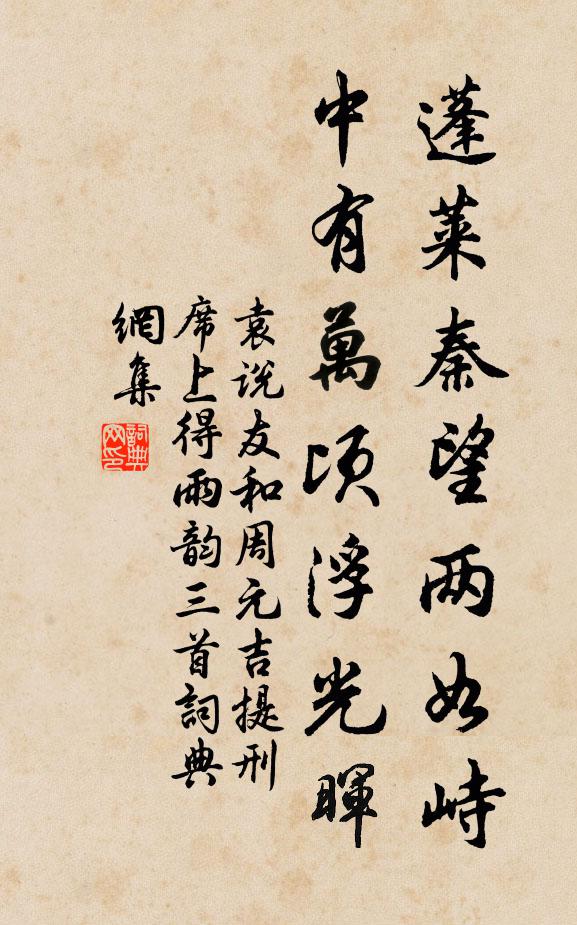 蓬莱秦望两如峙
中有萬頃浮光暉
袁说友和周元吉提刑
席上得雨韵三首詞典
網集
詞典网印